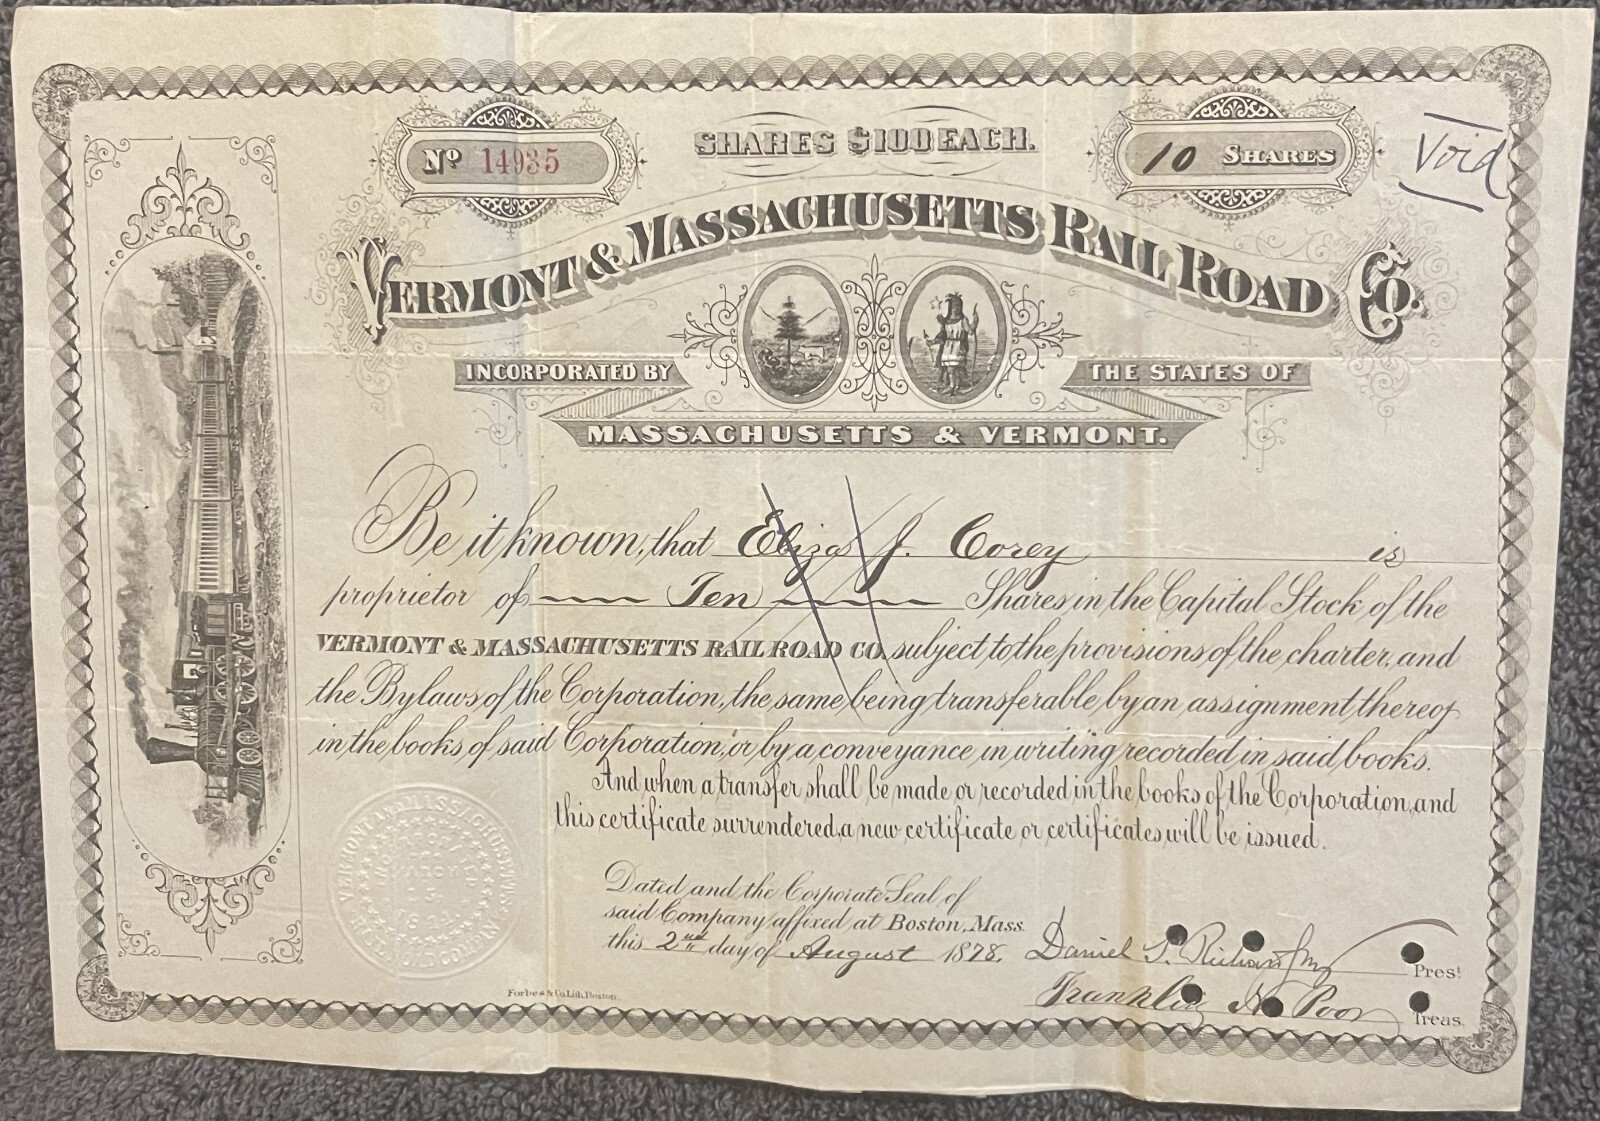 Nº 14935
SHARES $100 EACH.
10 SHARES
Void
VERMONT & MASSACHUSETTS RAIL ROAD CO.
INCORPORATED BY THE STATES OF
MASSACHUSETTS & VERMONT.
Be it known, that Eliza J. Corey is
proprietor of Ten Shares in the Capital Stock of the
VERMONT & MASSACHUSETTS RAIL ROAD CO. subject to the provisions of the charter, and
the Bylaws of the Corporation, the same being transferable by an assignment thereof
in the books of said Corporation, or by a conveyance in writing recorded in said books.
And when a transfer shall be made or recorded in the books of the Corporation, and
this certificate surrendered, a new certificate or certificates will be issued.
VERMONT AND MASSACHUSETTS RAILROAD COMPANY
INCORPORATED
MARCH
15
Dated and the Corporate Seal of
said Company affixed at Boston, Mass.
this 2nd day of August 1878.
Daniel S. Richardson Prest
Franklin N. Poor Treas.
Forbes & Co. Lith. Boston.